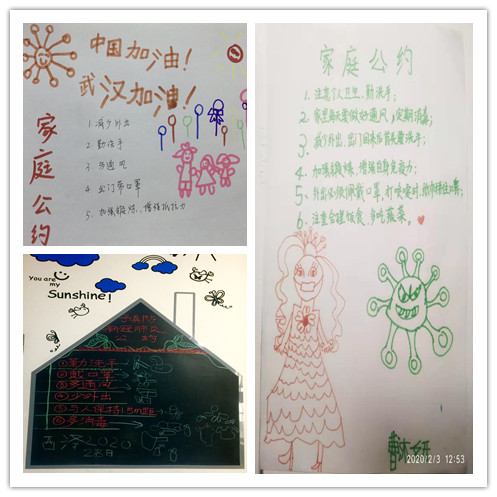 中国加油!
武汉加油!
家庭公约
1. 减少外出
2. 勤洗手
3. 多通风
4. 出门带口罩
5. 加强锻炼、增强抵抗力
家庭公约
1. 注意个人卫生,勤洗手;
2. 家里每天要做好通风,定期消毒;
3. 减少外出,出门回来后就要洗手;
4. 加强锻炼,增强自身免疫力;
5. 外出必须佩戴口罩,打喷嚏时,
6. 注意合理饮食,多吃蔬菜。
2020/2/3 12:53
You are
my
Sunshine!
预防
新冠肺炎
公约
①勤洗手
②戴口罩
③多通风
④少外出
⑤与人保持1.5m距
⑥多消毒
西泽2020
2.8日